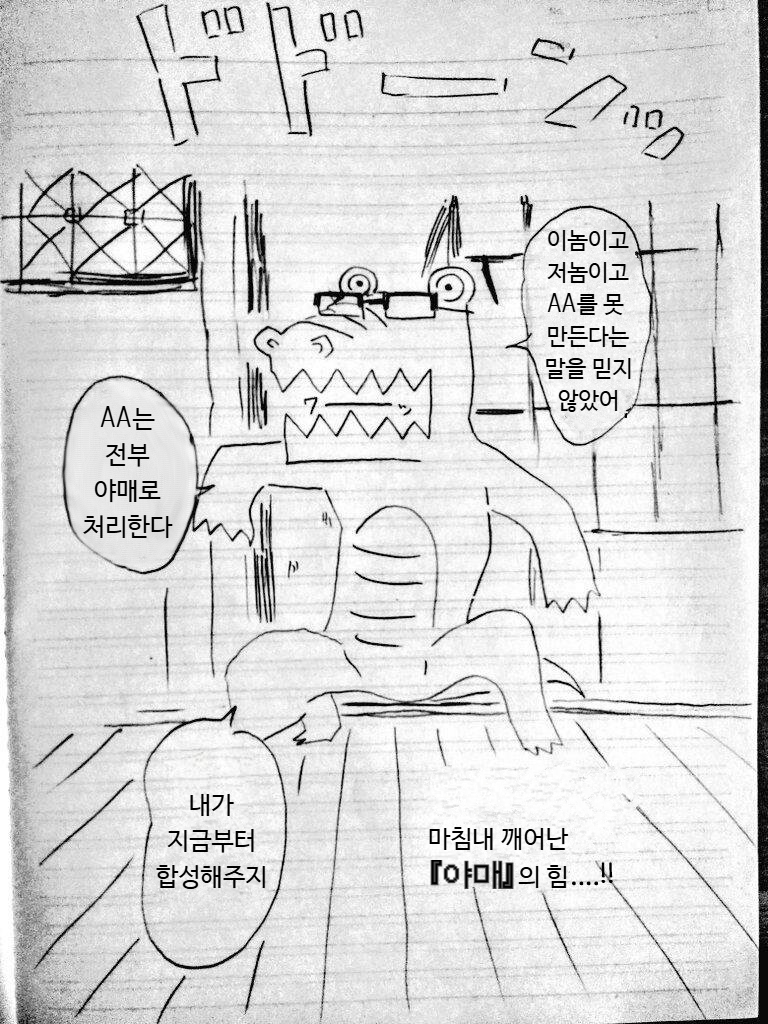 ドドーン
이놈이고
저놈이고
AA를 못
만든다는
말을 믿지
않았어
ワーッ
AA는
전부
야매로
처리한다
내가
지금부터
합성해주지
마침내 깨어난
『야매』의 힘....!!